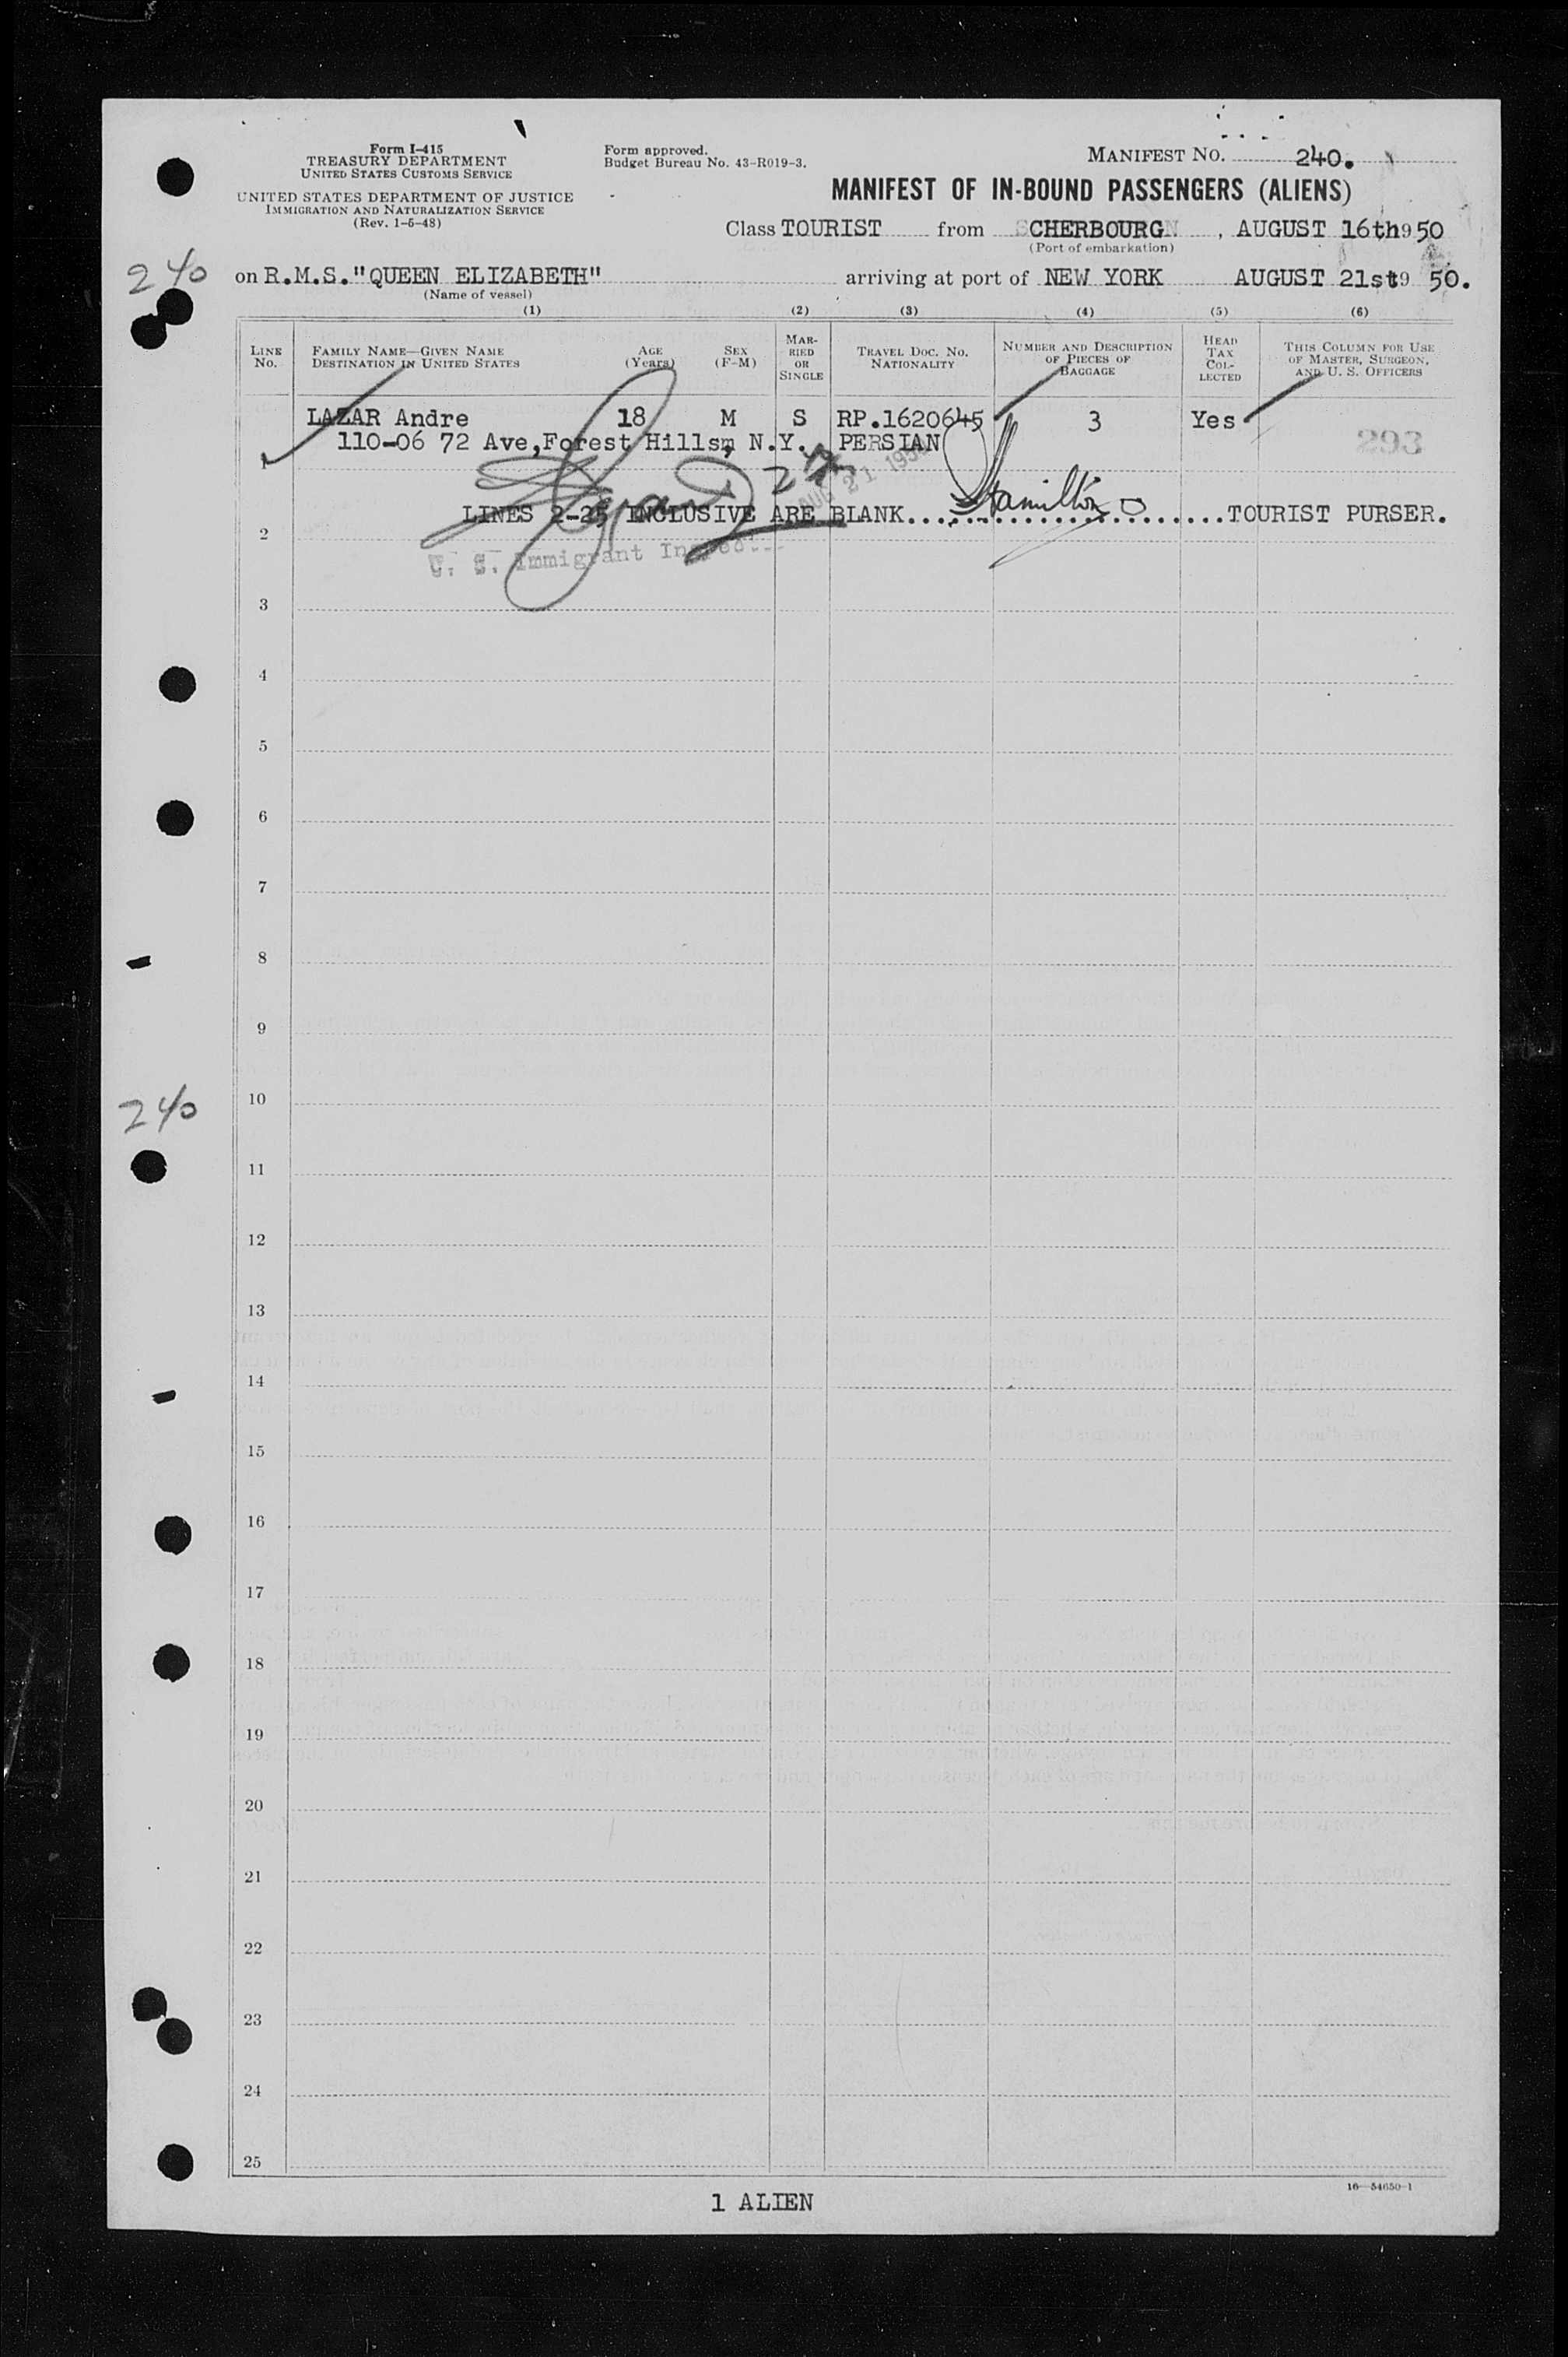 Form I-415
TREASURY DEPARTMENT
UNITED STATES CUSTOMS SERVICE
UNITED STATES DEPARTMENT OF JUSTICE
IMMIGRATION AND NATURALIZATION SERVICE
(Rev. 1-5-48)
Form approved.
Budget Bureau No. 43-R019-3.
MANIFEST NO. 240.
MANIFEST OF IN-BOUND PASSENGERS (ALIENS)
Class TOURIST from CHERBOURG, AUGUST 16th 950
(Port of embarkation)
240
on R.M.S."QUEEN ELIZABETH" arriving at port of NEW YORK AUGUST 21st 9 50.
(Name of vessel)
(1) (2) (3) (4) (5) (6)
LINE No.
FAMILY NAME—GIVEN NAME
DESTINATION IN UNITED STATES
AGE (Years)
SEX (F-M)
MARRIED OR SINGLE
TRAVEL DOC. NO. NATIONALITY
NUMBER AND DESCRIPTION OF PIECES OF BAGGAGE
HEAD TAX COLLECTED
THIS COLUMN FOR USE OF MASTER, SURGEON, AND U. S. OFFICERS
LAZAR Andre 18 M S RP.1620645 3 Yes
110-06 72 Ave,Forest Hills, N.Y. PERSIAN 293
1
AUG 21 1950
LINES 2-25 INCLUSIVE ARE BLANK. Hamilton TOURIST PURSER.
2
U. S. Immigrant Inspec
3
4
5
6
7
8
9
10
240
11
12
13
14
15
16
17
18
19
20
21
22
23
24
25
16—54650-1
1 ALIEN